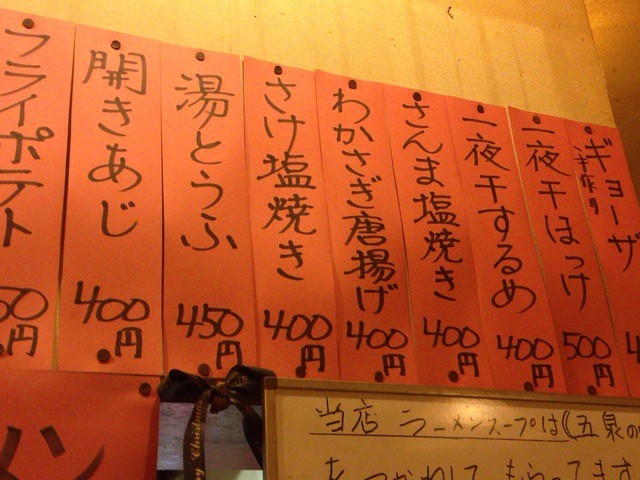 ギョーザ
手作り
一夜干ほっけ
500円
一夜干するめ
400円
さんま塩焼き
400円
わかさぎ唐揚げ
400円
さけ塩焼き
400円
湯とうふ
450円
開きあじ
400円
フライポテト
円
当店 ラーメンスープは(五泉の
Christmas